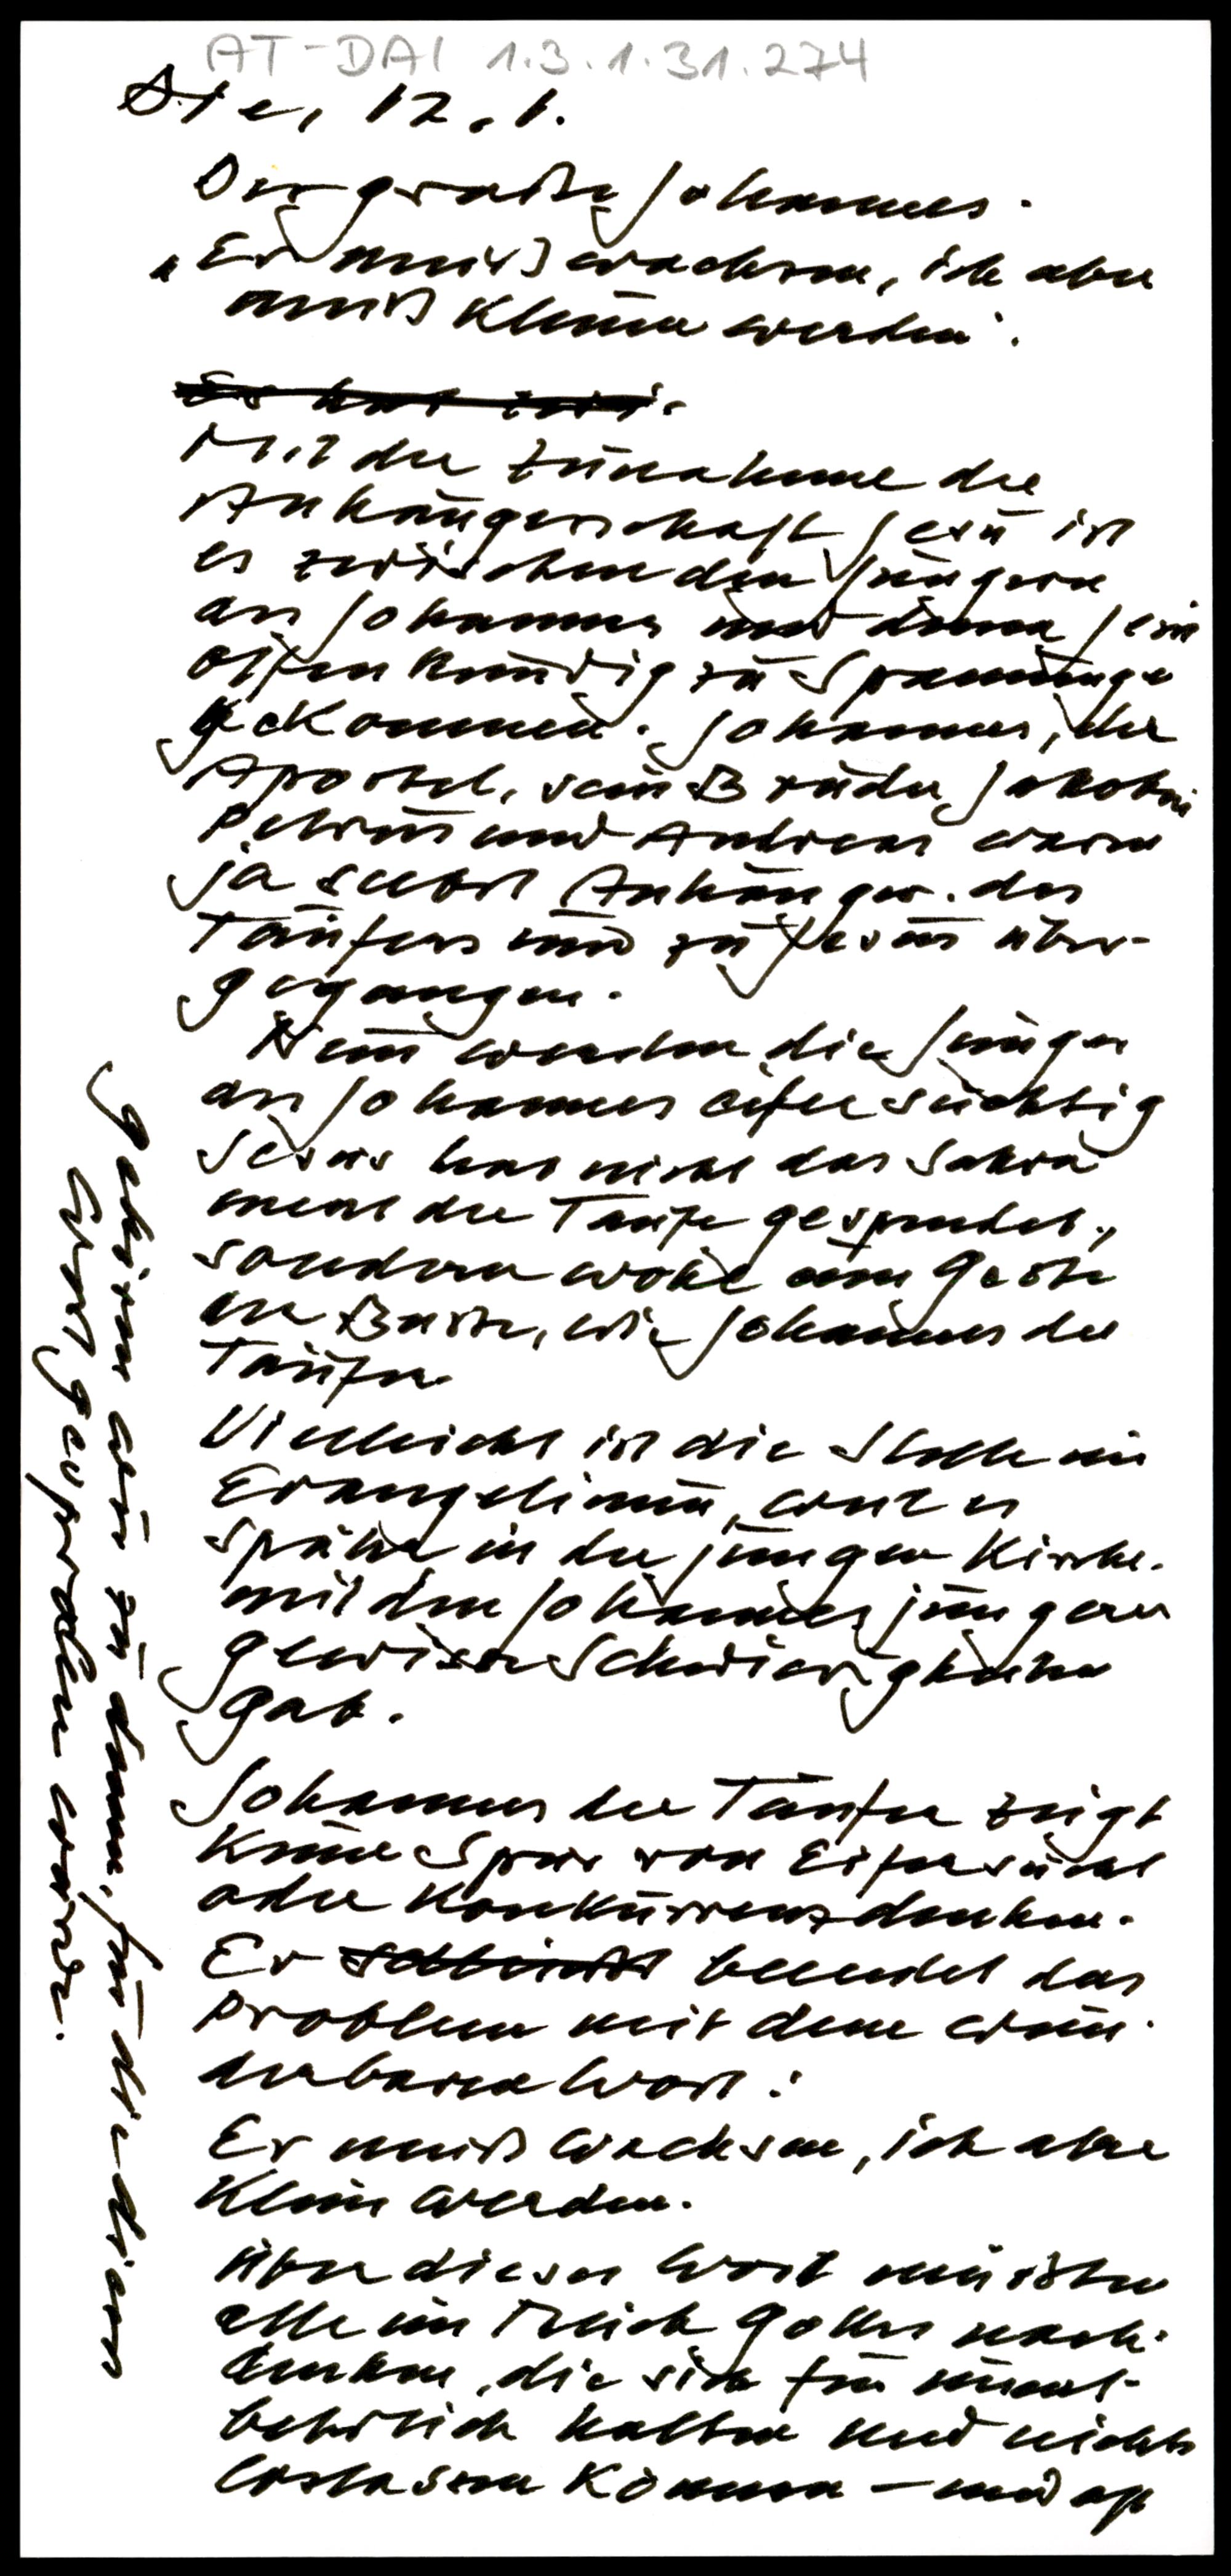 AT-DAI 1.3.1.31.274
12.1.
Der große Johannes.
„Er muß wachsen, ich aber
muß kleiner werden".
Es hat
Mit der Zunahme der
Anhängerschaft Jesu ist
es zwischen den Jüngern
des Johannes und denen Jesu
offenkundig zu Spannungen
gekommen. Johannes, der
Apostel, sein Bruder Jakobus
Petrus und Andreas waren
ja selbst Anhänger des
Täufers und zu Jesus über-
gegangen.
Nun werden die Jünger
des Johannes eifersüchtig
Jesus hat nicht das Sakra
ment der Taufe gespendet,
sondern wohl eine Geste
der Buße, wie Johannes der
Täufer
Vielleicht ist die Stelle im
Evangelium, weil es
später in der jungen Kirche
mit den Johannesjüngern
gewisse Schwierigkeiten
gab.
Johannes der Täufer zeigt
keine Spur von Eifersucht
oder Konkurrenzdenken.
Er beendet das
Problem mit dem wun-
derbaren Wort:
Er muß wachsen, ich aber
kleiner werden.
Über dieses Wort müßten
alle im Reich Gottes nach-
denken, die sich für unent-
behrlich halten und nichts
loslassen können – und oft
gehören wir zu denen, für die dieses
Wort gesprochen wurde.